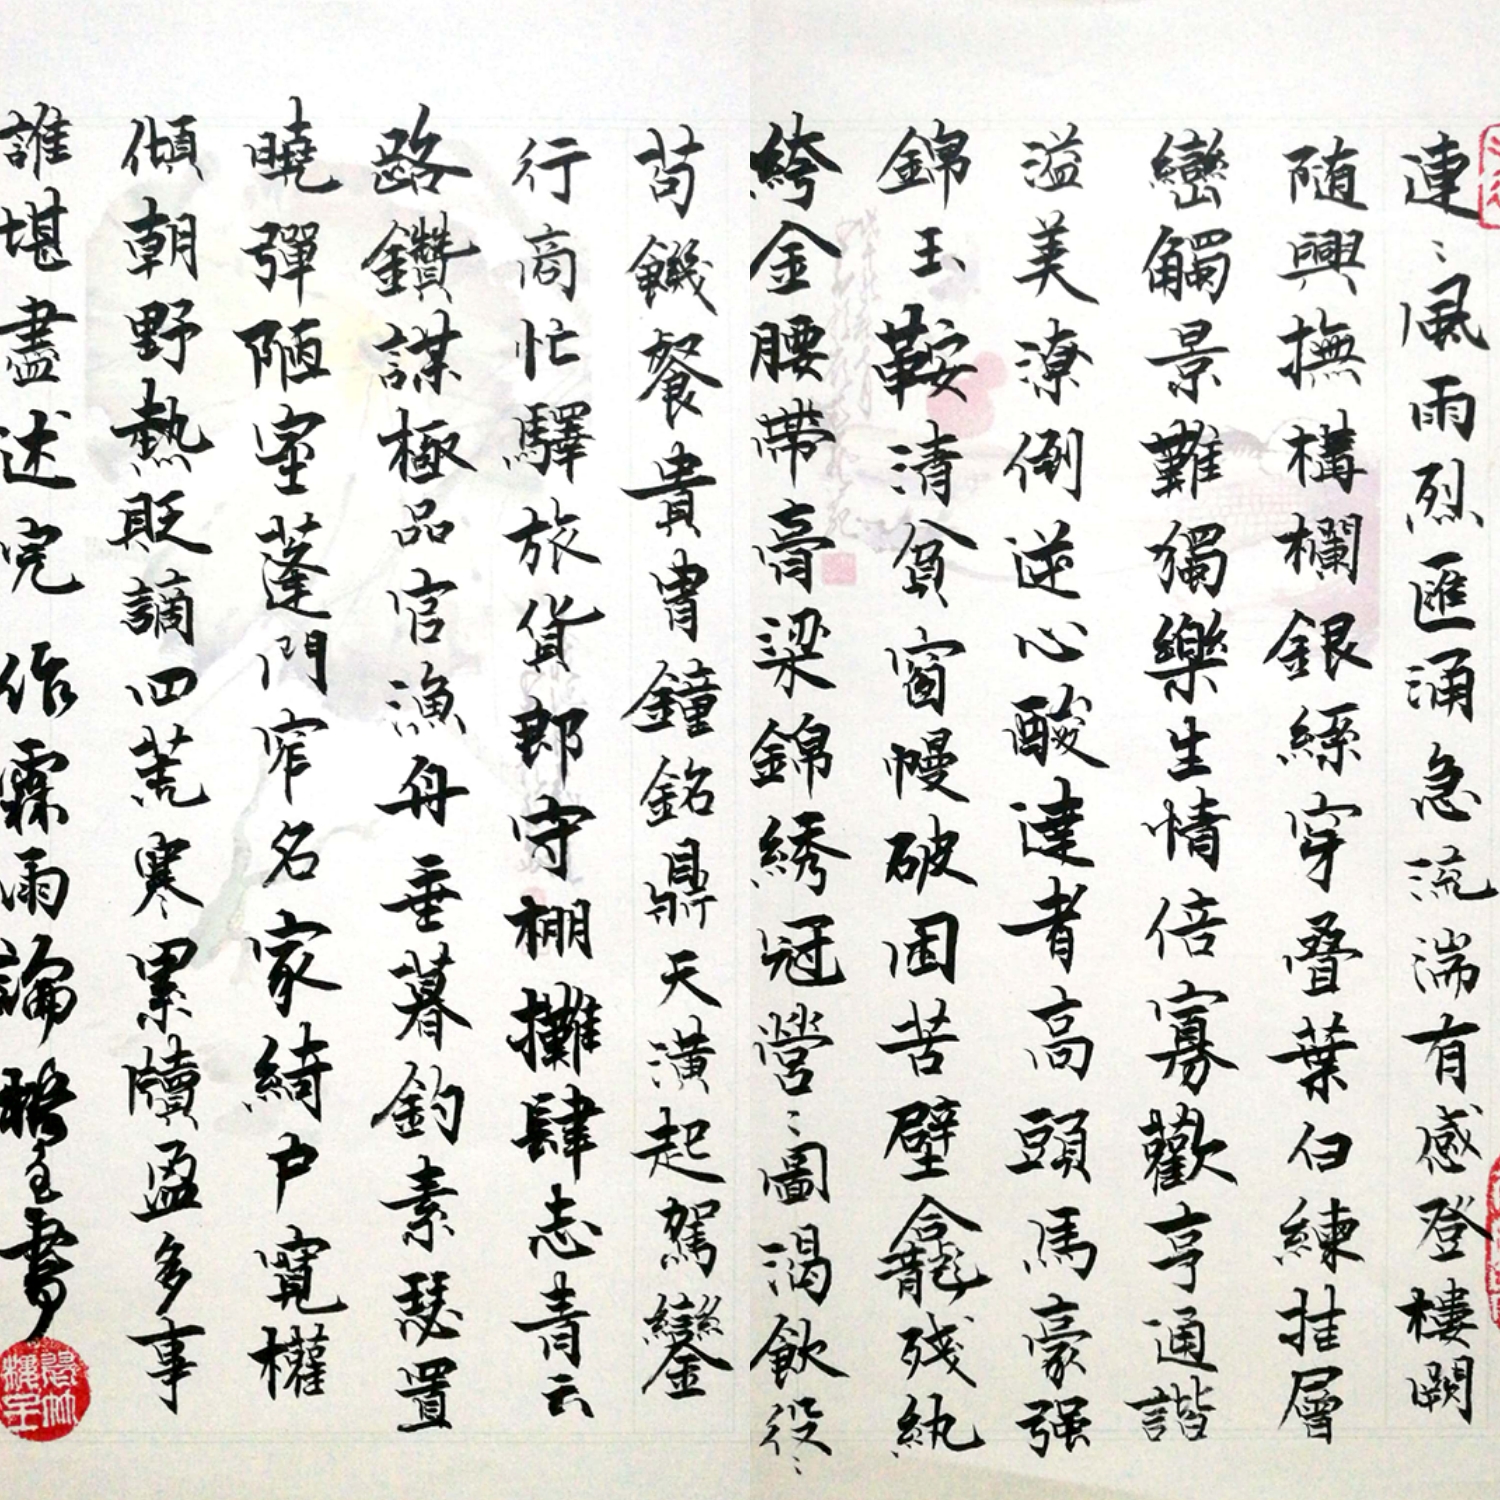 連〻風雨烈匯涌急流湍有感登樓闕
随興撫構欄銀絲穿叠葉白練挂層
巒觸景難獨樂生情倍寡歡亨通諧
溢美潦倒逆心酸達者高頭馬豪强
錦玉鞍清貧窗幔破困苦壁龕殘紈
絝金腰帶膏梁錦綉冠營〻圖渴飲役〻
苟饑餐貴胄鐘銘鼎天潢起駕鑾
行商忙驛旅貨郎守棚攤肆志青云
路鑽謀極品官漁舟垂暮釣素琴置
曉彈陋室蓬門窄名家綺户寬權
傾朝野熱貶謫四荒寒累牘盈多事
誰堪盡述完 作霖雨論 書